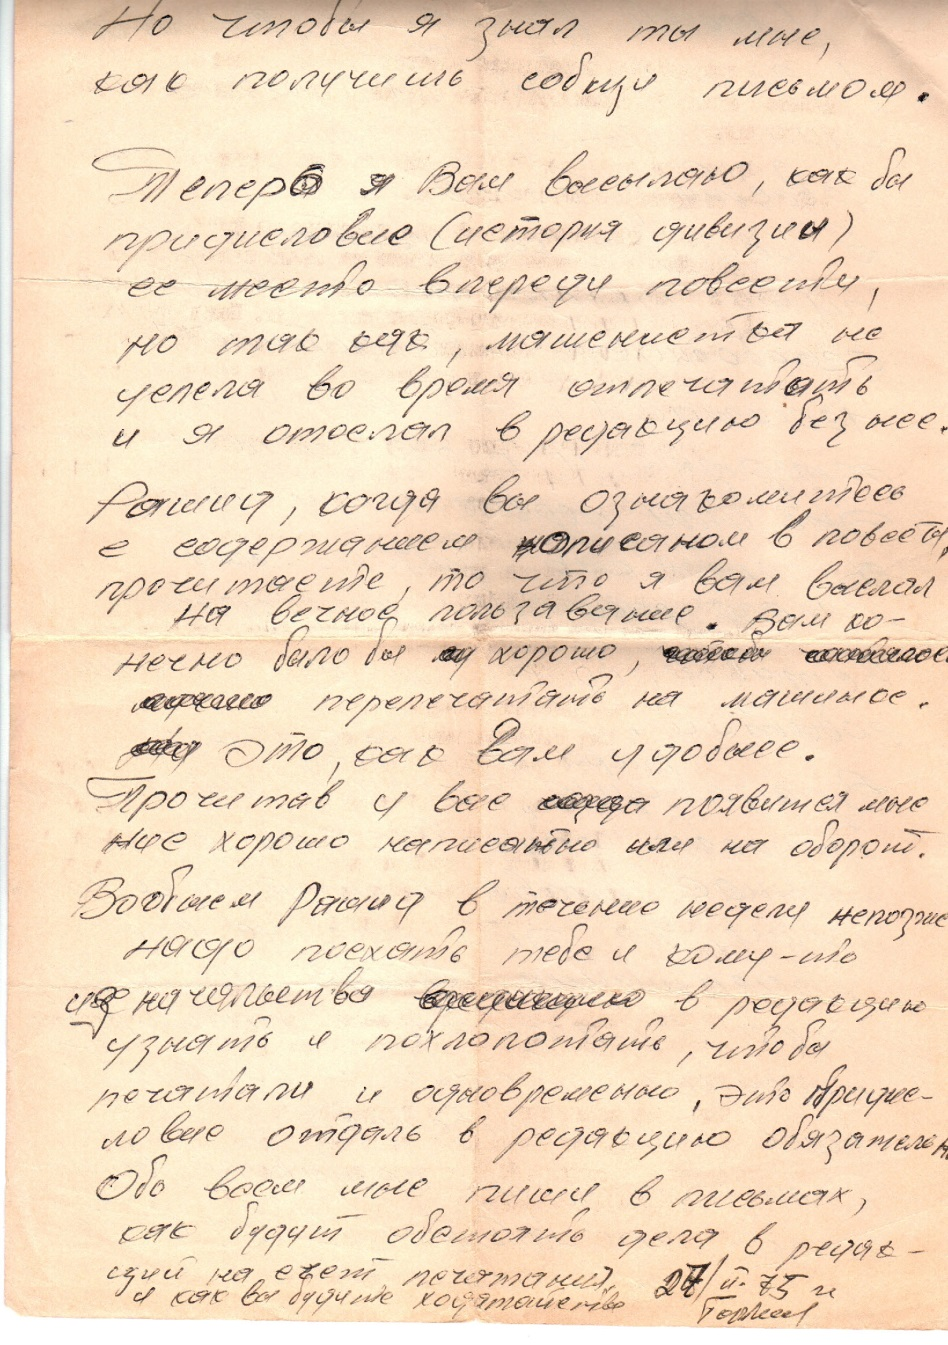 Но чтобы я знал ты мне,
как получишь собщи письмом.
Теперь я Вам высылаю, как бы
придисловие (история дивизии)
ее место впереди повести,
но так как, машенистка не
успела во время отпечатать
и я отослал в редакцию без нее.
Рашид, когда вы ознакомитесь
с содержанием написаном в повести,
прочитаете, то что я вам выслал
на вечное пользавание. Вам ко-
нечно было бы хорошо,
перепечатать на машинке.
Это, как Вам удобнее.
Прочитав у вас появится мне
ние хорошо написанно или на оборот.
Вообшем Рашид в течение недели непозже
надо поехать тебе и кому-то
из начяльства в редакцию
узнать и похлопотать, чтобы
печатали и одновременно, это придис-
ловие отдать в редакцию обязательно
Обо всем мне пиши в письмах,
как будут обстоять дела в редак-
ции на счет печатания,
и как вы будите ходатайство
27/II-75 г